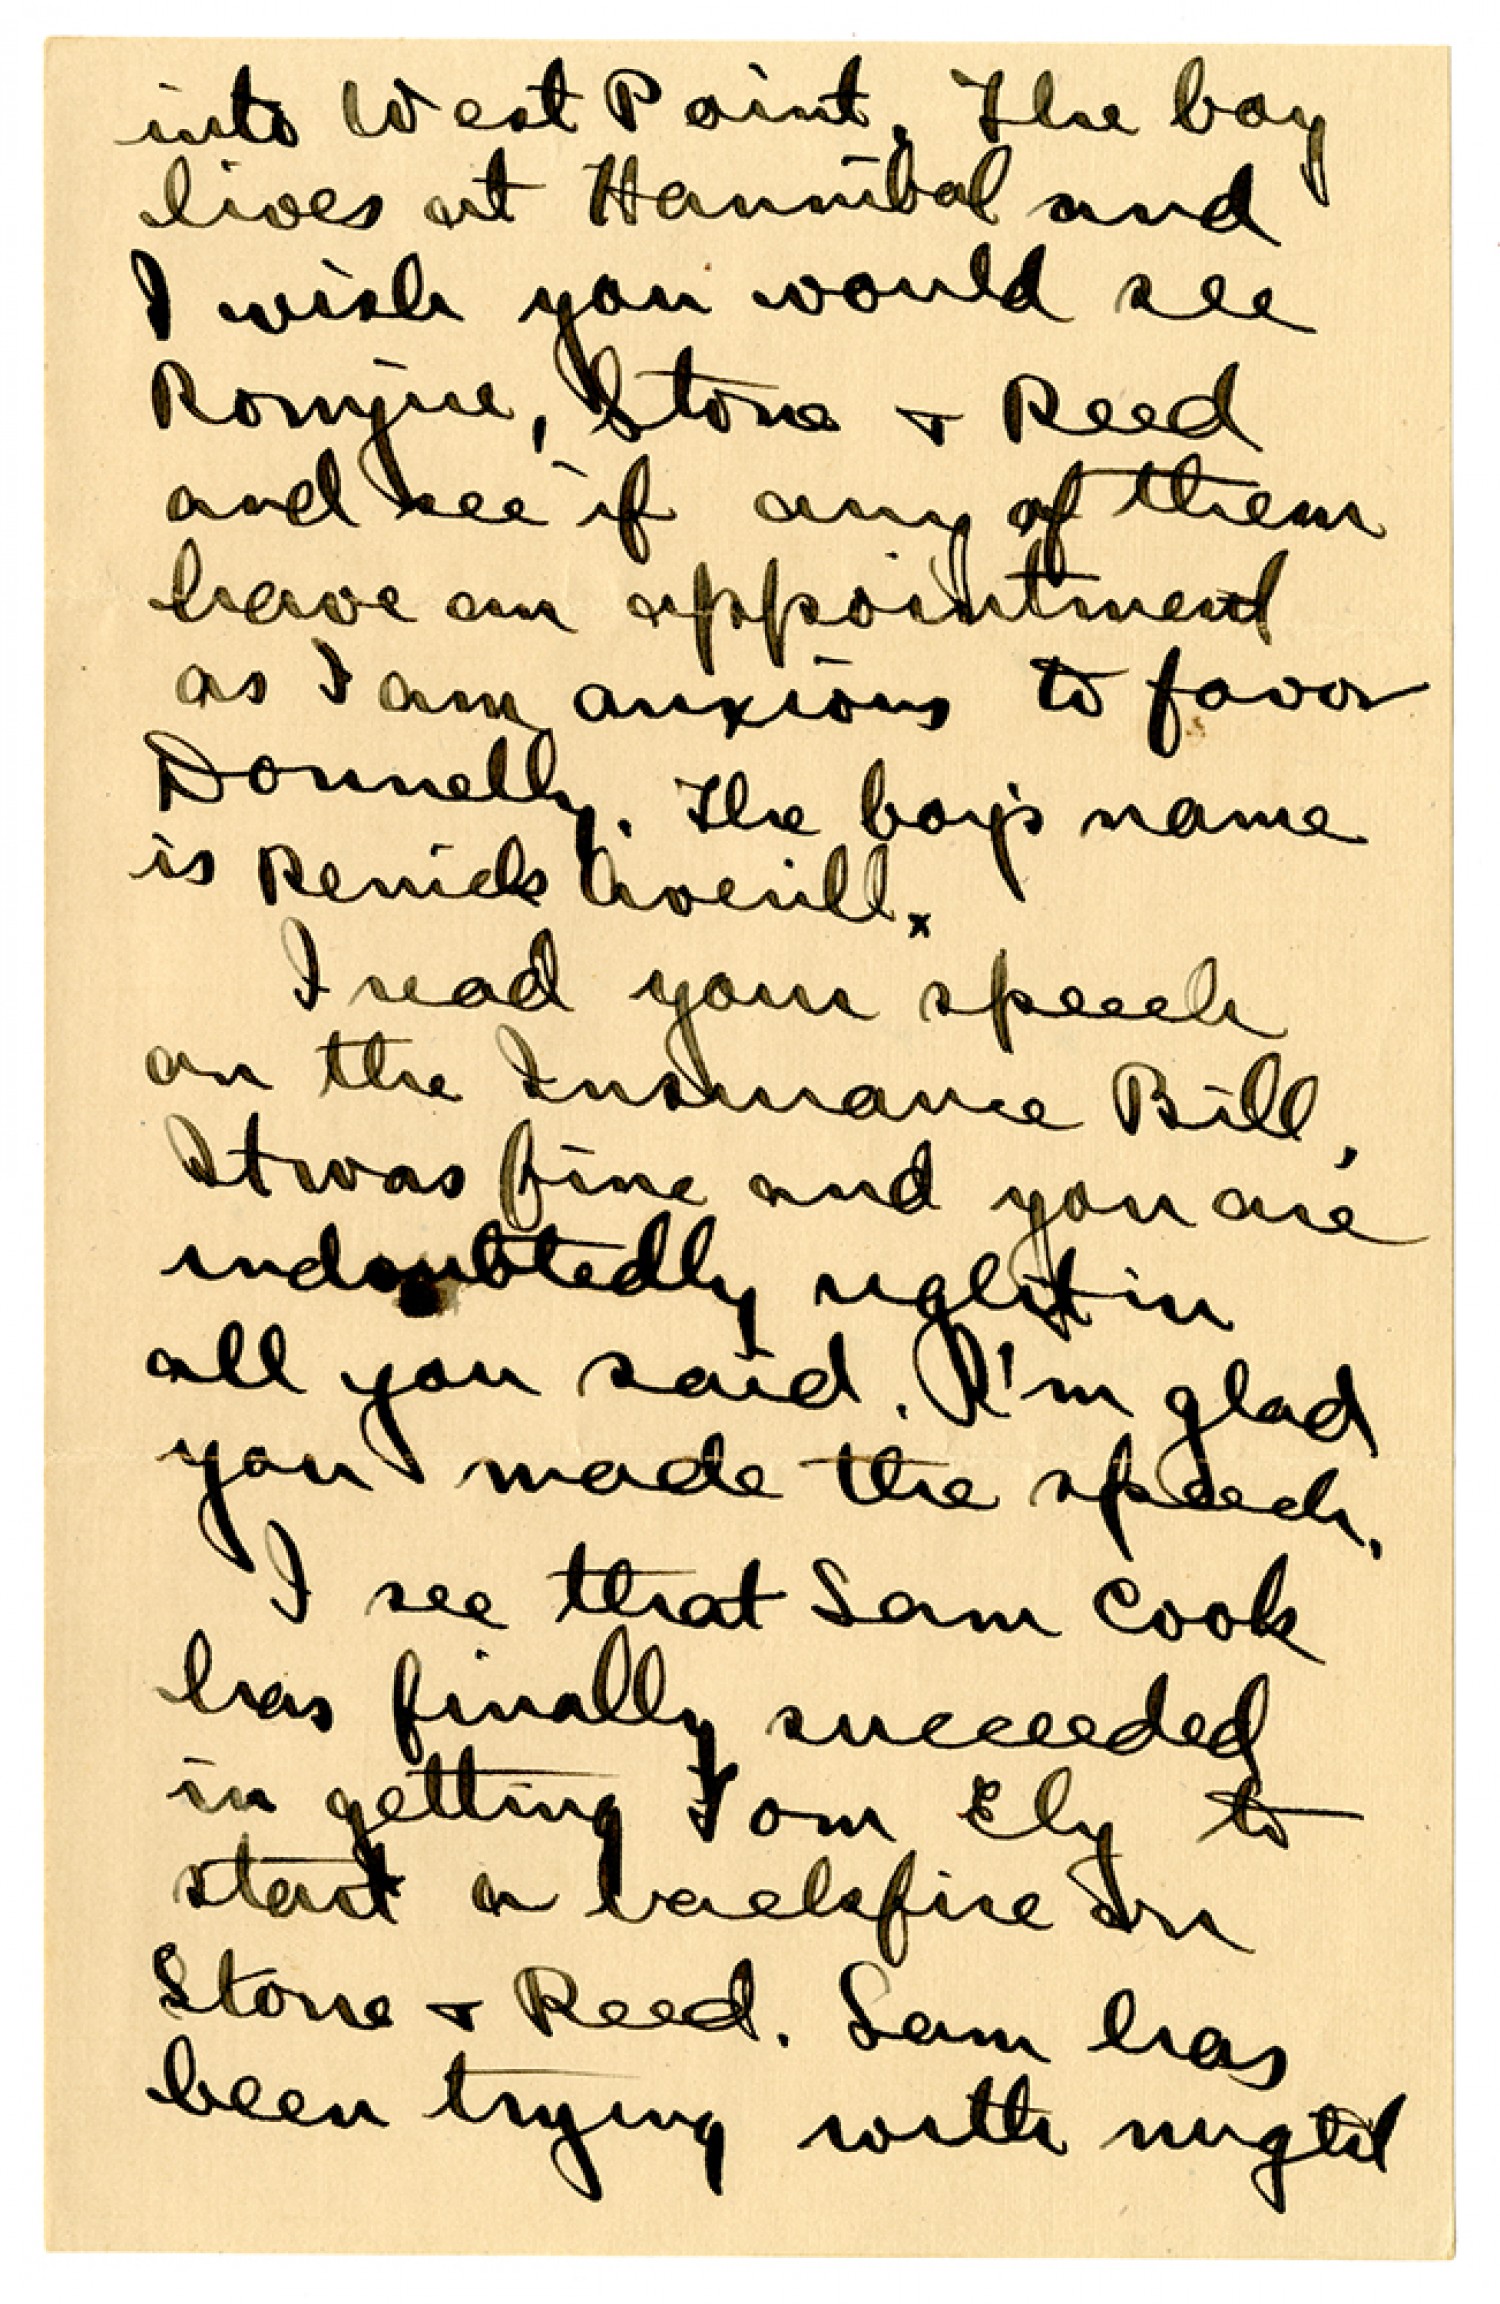 into West Point. The boy
lives at Hannibal and
I wish you would see
Romjue, Stone + Reed
and see if any of them
have an appointment
as I am anxious to favor
Donnelly. The boy's name
is Renick Averill.
I read your speech
on the Insurance Bill.
It was fine and you are
undoubtedly right in
all you said. I'm glad
you made the speech.
I see that Sam Cook
has finally succeeded
in getting Tom Ely to
start a backfire on
Stone + Reed. Sam has
been trying with might